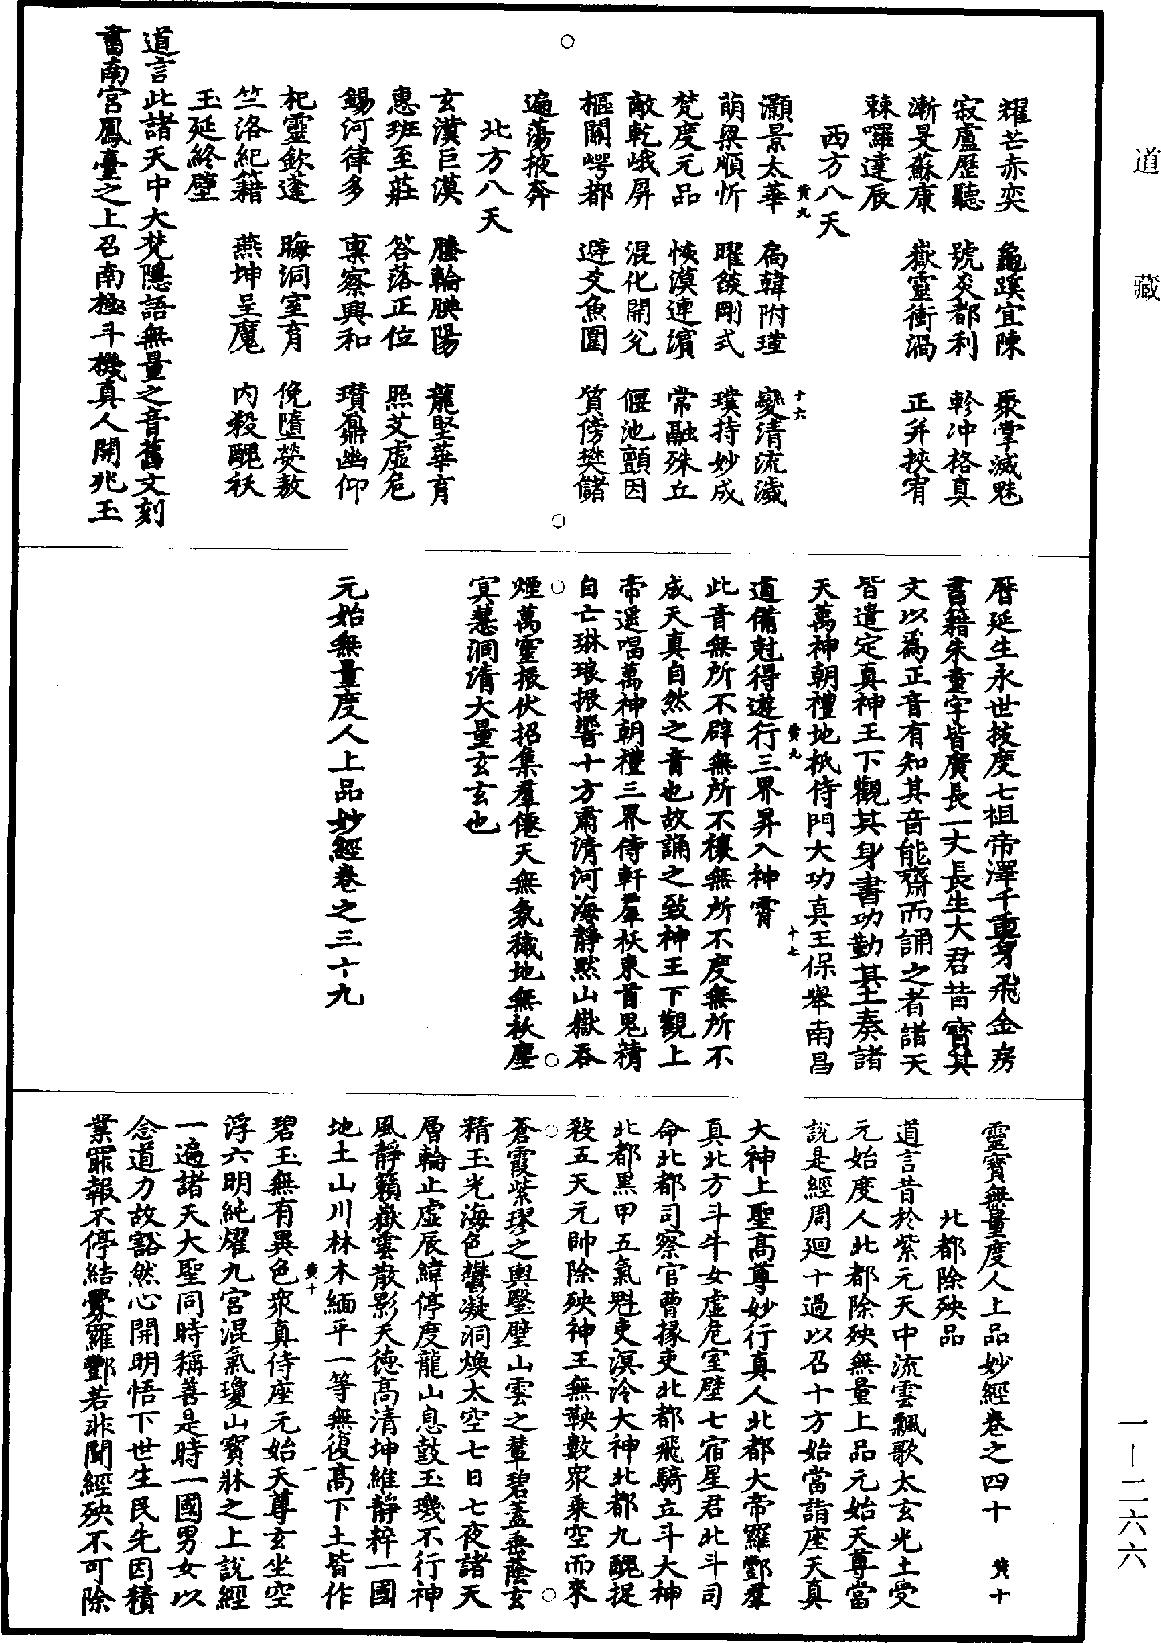 道藏
耀芒赤奕　龜蹊宜陳　聚掌滅魅
寂盧歷聽　號炎都利　軫冲格真
漸旻蘇康　嶽靈衝渦　正并挾宥
棘囉達辰
西方八天
灝景太華　扄韓附瑝　變清流濊
萌梁順忻　曜餤剛式　璞持妙成
梵度元品　恢漠連濱　常融殊丘
敵乾峨屏　混化開兊　偃池顫因
樞關崿都　避爻魚圍　質傍樊儲
遍蕩掖奔
北方八天
玄濛巨漠　騰輪腴陽　龍堅華育
惠班至莊　答落正位　照艾虛危
錫河律多　稟察興和　瓚鼐幽仰
杞靈欽蓬　晦洞室育　俛墮熒敖
竺洛紀籍　燕坤呈魔　内殺醜祅
玉延終壁
道言此諸天中大梵隱語無量之音舊文刻
書南宮鳳臺之上召南極斗機真人開兆玉
曆延生永世拔度七祖帝澤千重身飛金房
書籍朱童字皆廣長一丈長生大君昔寶其
文以為正音有知其音能齋而誦之者諸天
皆遣定真神王下觀其身書功勤其上奏諸
天萬神朝禮地祇侍門大功真王保舉南昌
道備尅得遊行三界昇入神霄
此音無所不辟無所不禳無所不度無所不
成天真自然之音也故誦之致神王下觀上
帝遥唱萬神朝禮三界侍軒羣祅束首鬼精
自亡琳琅振響十方肅清河海靜默山嶽吞
煙萬靈振伏招集羣僊天無氛穢地無祅塵
冥慧洞清大量玄玄也
元始無量度人上品妙經卷之三十九
靈寶無量度人上品妙經卷之四十　黃十
北都除殃品
道言昔於紫元天中流雲飄歌太玄光土受
元始度人北都除殃無量上品元始天尊當
說是經周迴十過以召十方始當詣座天真
大神上聖高尊妙行真人北都大帝羅酆羣
真北方斗牛女虛危室壁七宿星君北斗司
命北都司察官曹掾吏北都飛騎立斗大神
北都黑甲五氣魁吏溟泠大神北都九醜捉
殺五天元帥除殃神王無鞅數眾乘空而來
蒼霞紫璆之輿堅壁山雲之輦碧蓋垂蔭玄
精玉光海色鬱凝洞煥太空七日七夜諸天
層輪止虛辰緯停度龍山息鼓玉璣不行神
風靜籟嶽雲散影天德高清坤維靜粹一國
地土山川林木緬平一等無復高下土皆作
碧玉無有異色衆真侍座元始天尊玄坐空
浮六明純燿九宮混氣瓊山寳牀之上說經
一遍諸天大聖同時稱善是時一國男女以
念道力故豁然心開明悟下世生民先因積
業罪報不停結釁羅酆若非聞經殃不可除
一—二六六